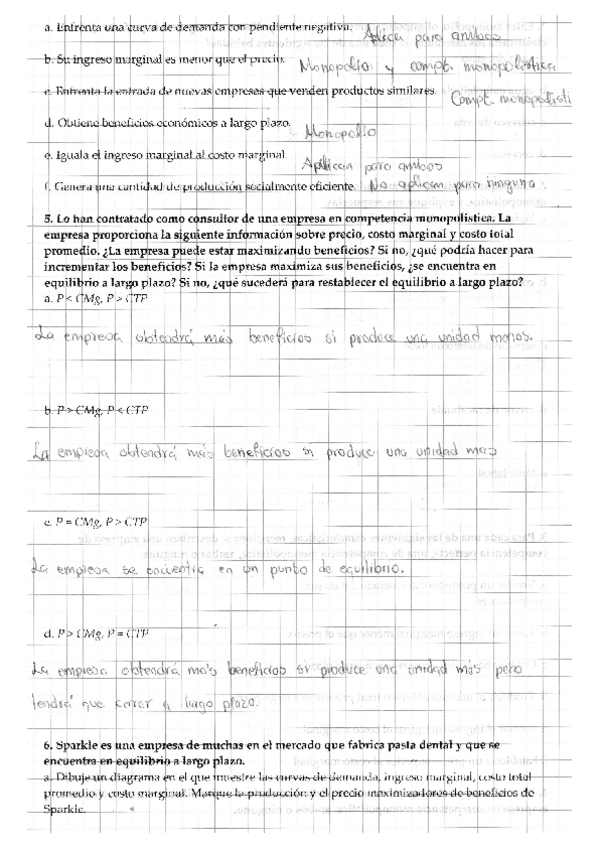 a. Enfrenta una curva de demanda con pendiente negativa. Aplican para ambos
b. Su ingreso marginal es menor que el precio. Monopolio y compt. monopolistica
c. Enfrenta la entrada de nuevas empresas que venden productos similares. Compt. monopolisti
d. Obtiene beneficios económicos a largo plazo. Monopolio
e. Iguala el ingreso marginal al costo marginal. Aplican para ambos
f. Genera una cantidad de producción socialmente eficiente. No aplican para ninguno.
5. Lo han contratado como consultor de una empresa en competencia monopolística. La
empresa proporciona la siguiente información sobre precio, costo marginal y costo total
promedio. ¿La empresa puede estar maximizando beneficios? Si no, ¿qué podría hacer para
incrementar los beneficios? Si la empresa maximiza sus beneficios, ¿se encuentra en
equilibrio a largo plazo? Si no, ¿qué sucederá para restablecer el equilibrio a largo plazo?
a. P < CMg, P > CTP
La empresa obtendrá más beneficios si produce una unidad menos.
b. P > CMg, P < CTP
La empresa obtendrá más beneficios si produce una unidad mas
c. P = CMg, P > CTP
La empresa se encuentra en un punto de equilibrio.
d. P > CMg, P = CTP
La empresa obtendrá más beneficios si produce una unidad más pero
tendrá que cerrar a largo plazo.
6. Sparkle es una empresa de muchas en el mercado que fabrica pasta dental y que se
encuentra en equilibrio a largo plazo.
a. Dibuje un diagrama en el que muestre las curvas de demanda, ingreso marginal, costo total
promedio y costo marginal. Marque la producción y el precio maximizadores de beneficios de
Sparkle.